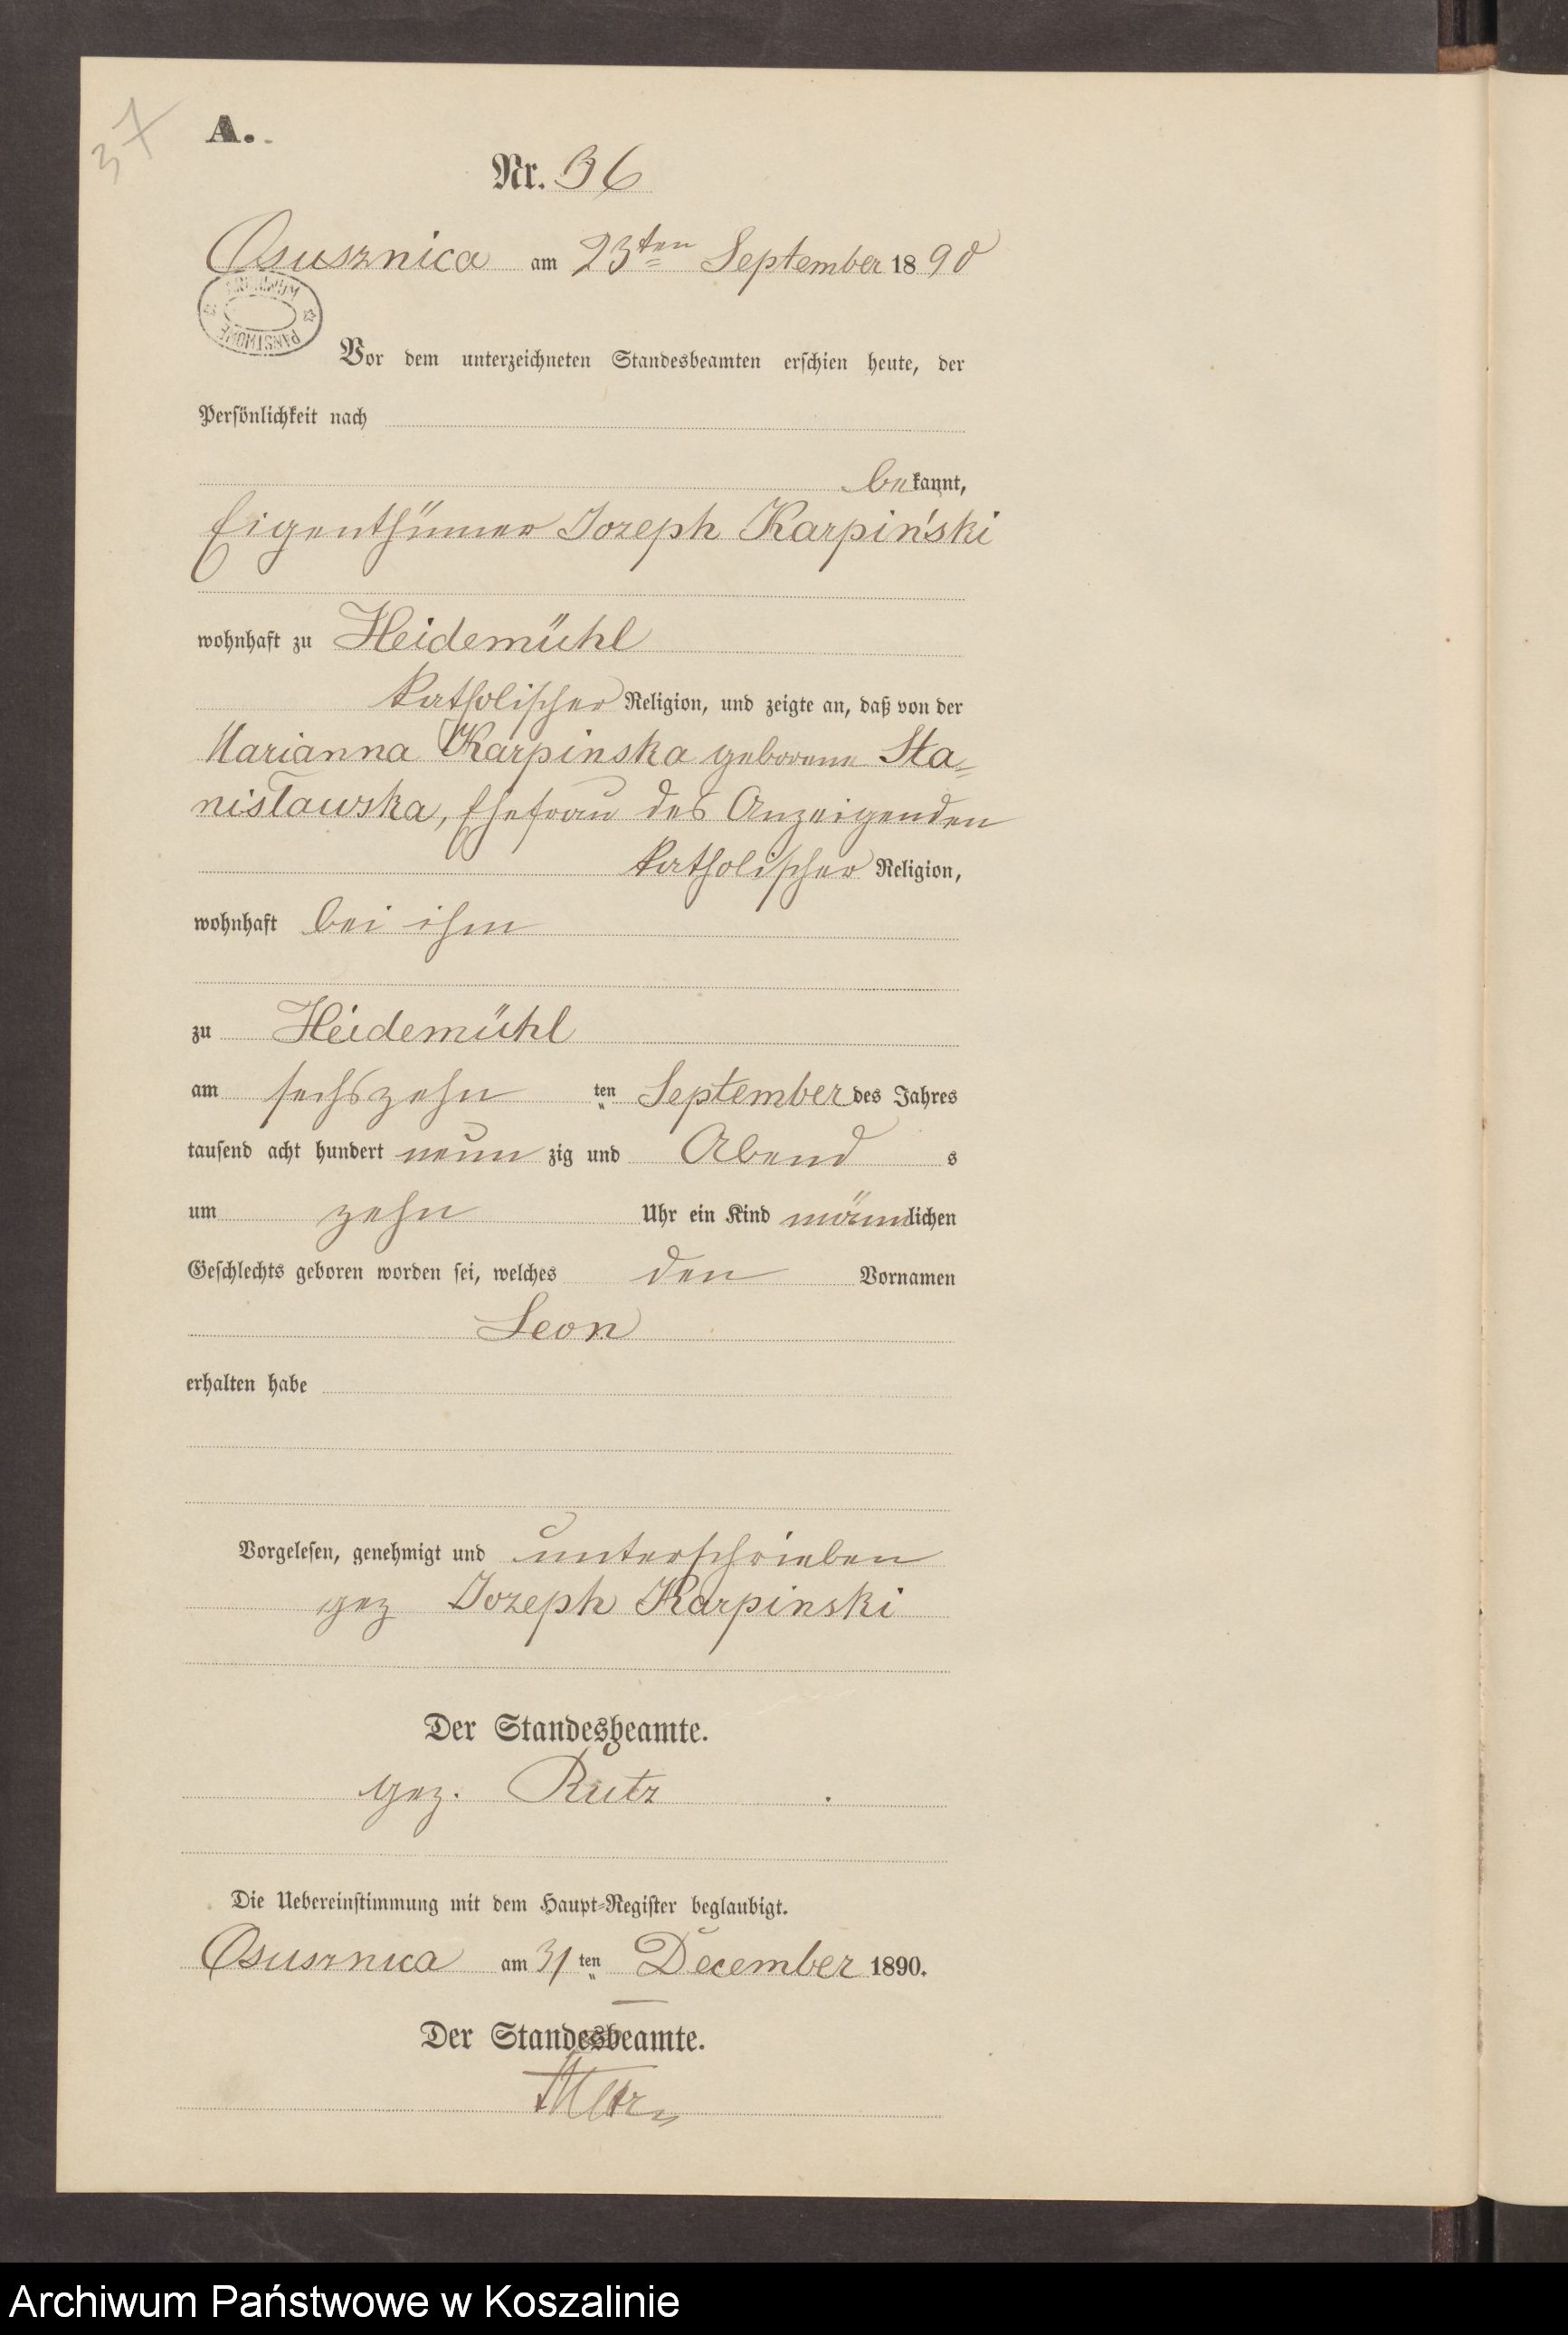 37
A.
Nr. 36
Osusznica am 23ten September 1890
ARCHIWUM PAŃSTWOWE
Vor dem unterzeichneten Standesbeamten erschien heute, der
Persönlichkeit nach
bekannt,
Eigenthümer Jozeph Karpiński
wohnhaft zu Heidemühl
katholischer Religion, und zeigte an, daß von der
Marianna Karpinska geborene Sta-
nisławska, Ehefrau des Anzeigenden
katholischer Religion,
wohnhaft bei ihm
zu Heidemühl
am sechszehn ten September des Jahres
tausend acht hundert neun zig und Abend s
um zehn Uhr ein Kind männlichen
Geschlechts geboren worden sei, welches den Vornamen
Leon
erhalten habe
Vorgelesen, genehmigt und unterschrieben
gez Jozeph Karpinski
Der Standesbeamte.
gez. Rutz
Die Uebereinstimmung mit dem Haupt-Register beglaubigt.
Osusznica am 31 ten December 1890.
Der Standesbeamte.
Archiwum Państwowe w Koszalinie